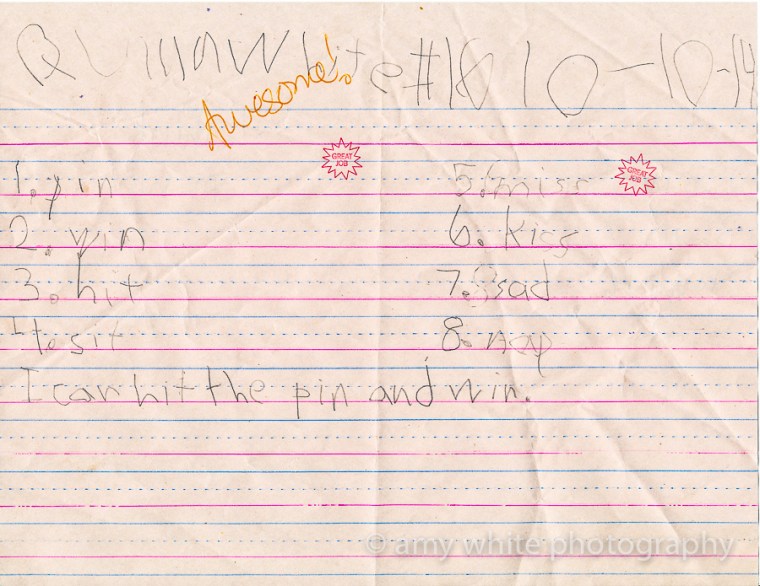 Quinn White #18 10-10-14
Awesome!
GREAT JOB
GREAT JOB
1. pin
2. win
3. hit
4. sit
5. miss
6. kiss
7. sad
8. nap
I can hit the pin and win.
© amy white photography